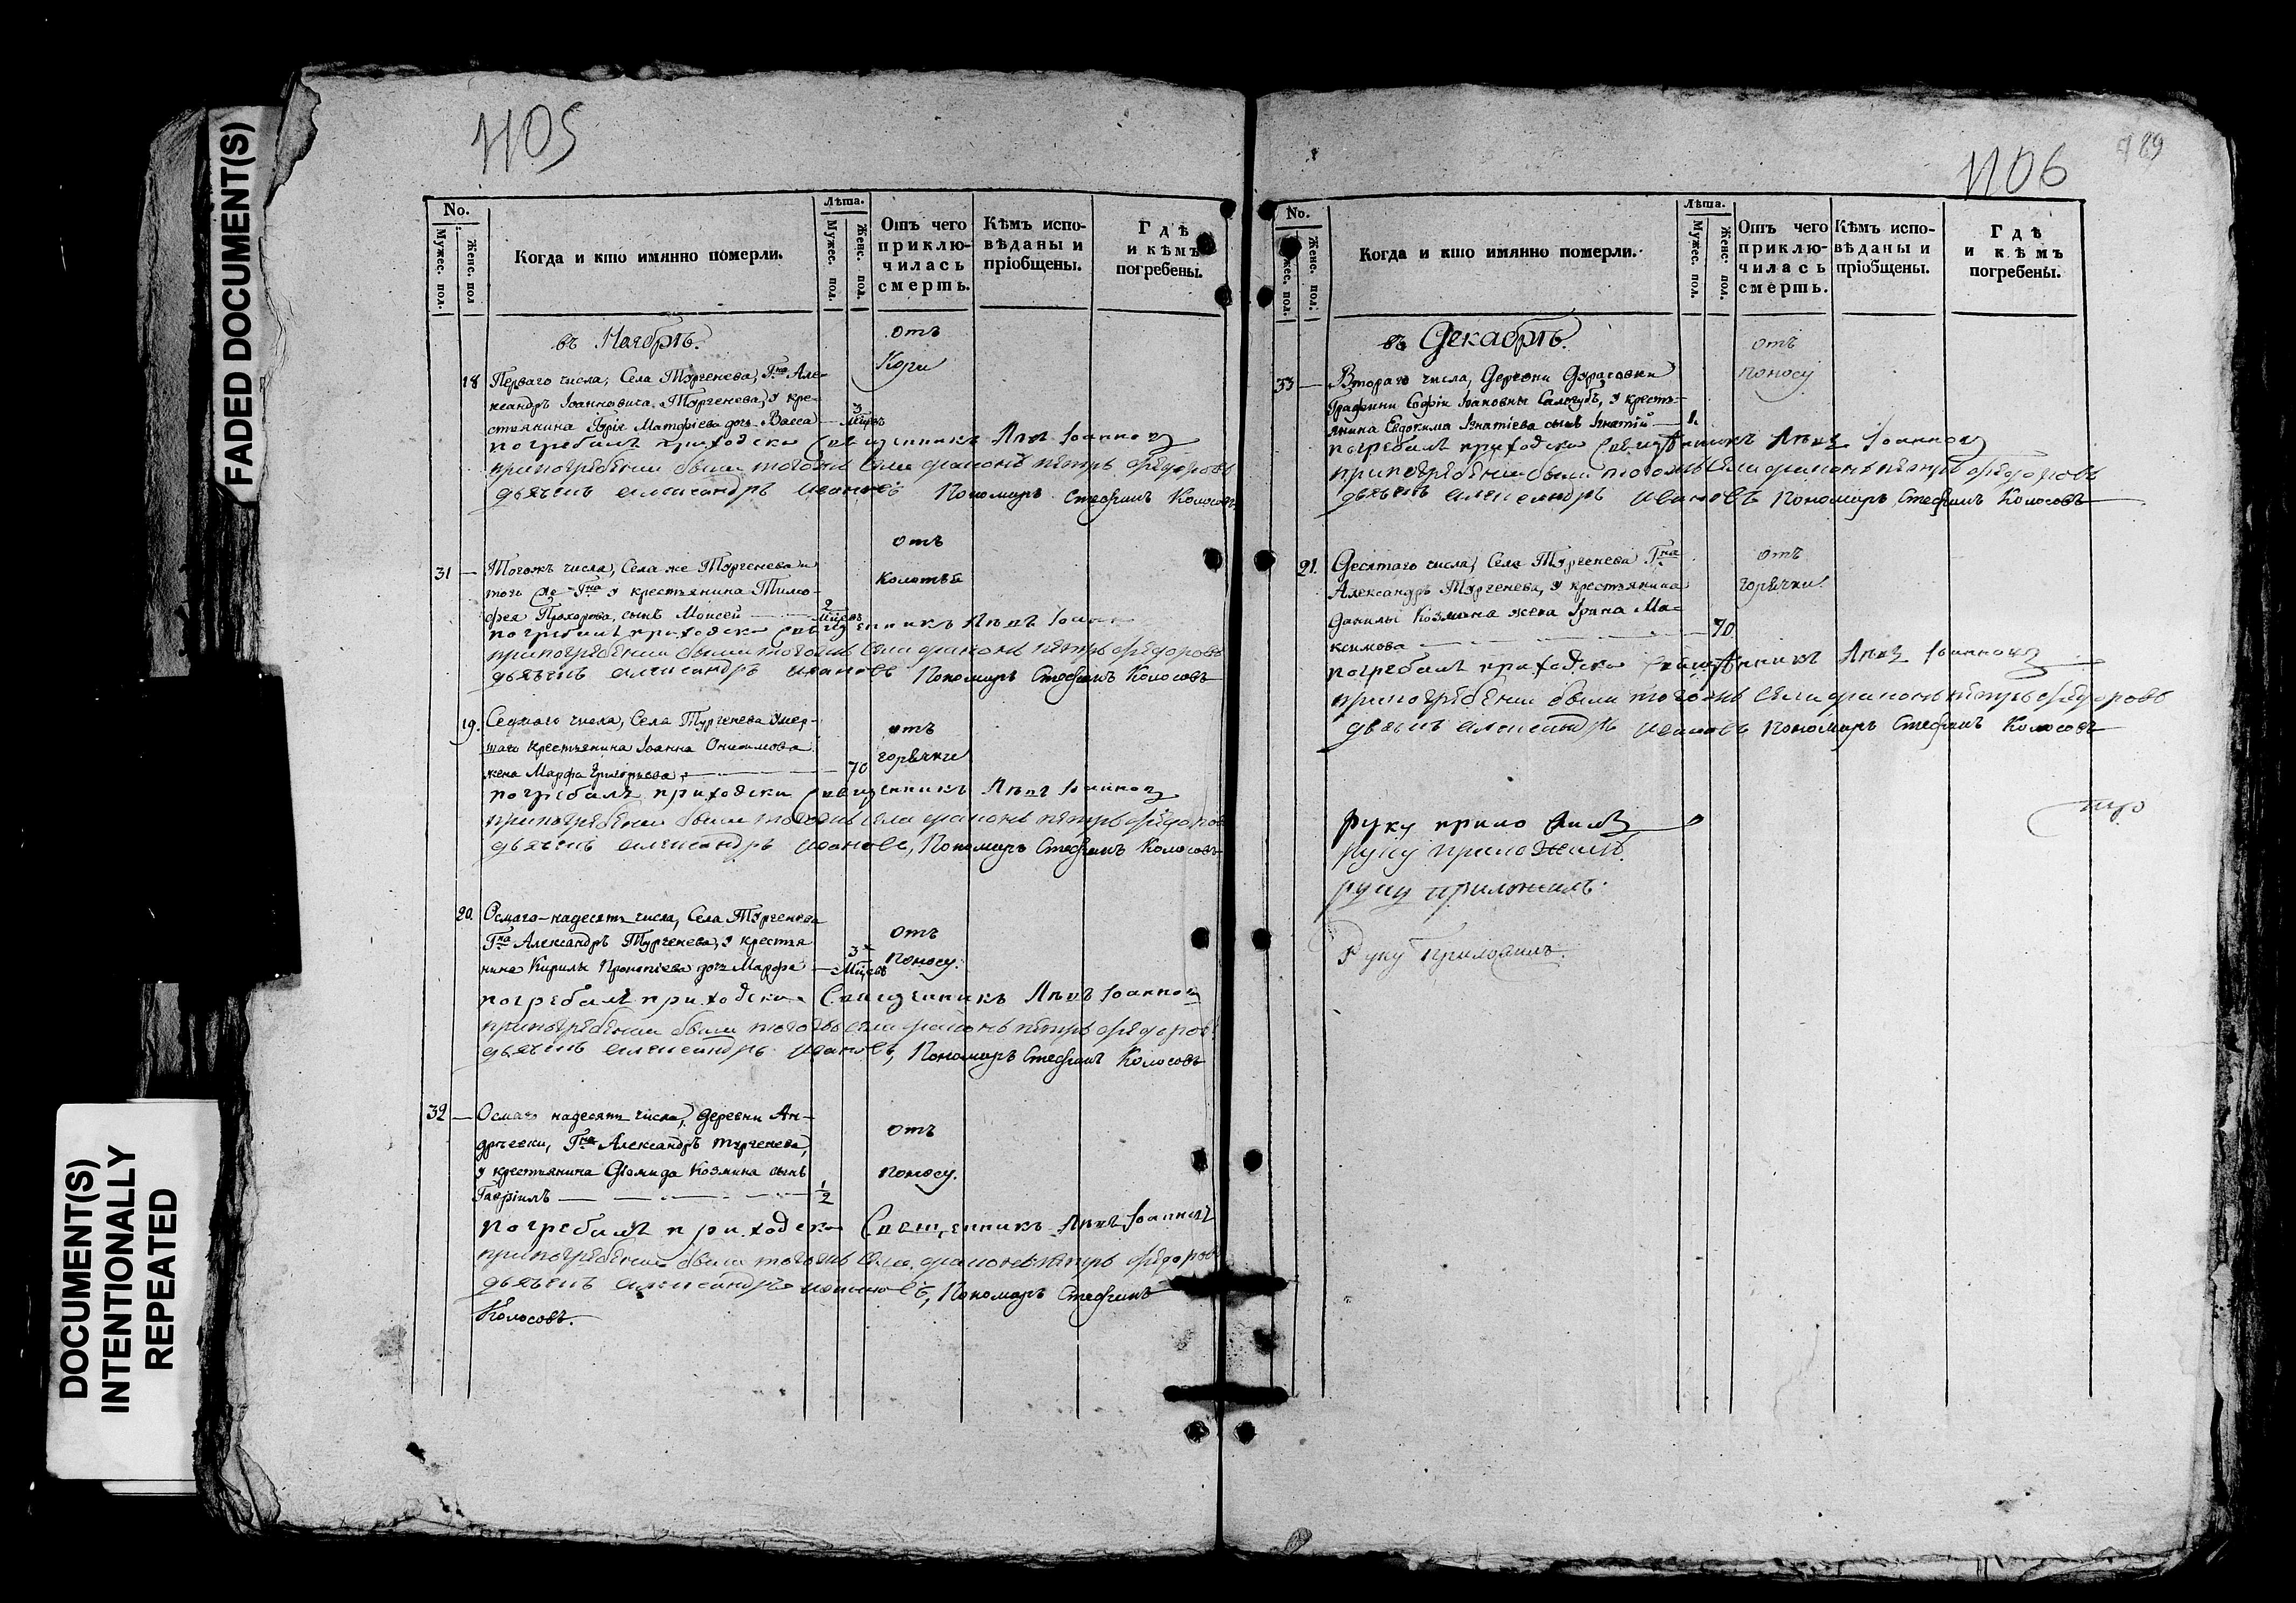 FADED DOCUMENT(S)
DOCUMENT(S)
INTENTIONALLY
REPEATED
1105
No.
Мужес. пол.
Женс. пол
Когда и кто имянно померли.
Лѣта.
Мужес. пол.
Женс. пол.
Отъ чего
приклю-
чилась
смерть.
Кѣмъ испо-
вѣданы и
пріобщены.
Гдѣ
и кѣмъ
погребены.
въ Ноябрѣ.
отъ
Кори
18 Перваго числа, Села Тургенева, Гна Але-
ксандръ Іоанновича Тургенева, у кре-
стьянина Матфіева дочь Васса — 3 мцовъ
погребалъ приходски Священникъ Левъ Іоанновъ
при погребении были тогожъ села диаконъ петръ федоровъ
дьячекъ александръ ивановъ Пономарь Стефанъ Колосовъ
отъ
31 — Тогожъ числа, Села же Тургенева и
тогожъ Гна у крестьянина Тимо-
фея Прохорова, сынъ Моисей — 2
погребалъ приходски священникъ Левъ
при погребении были тогожъ села диаконъ петръ федоровъ
дьячекъ александръ ивановъ Пономарь Стефанъ Колосовъ
19. Седмаго числа, Села Тургенева умер-
шаго крестьянина Іоанна Онисимова
жена Марфа Григорьева — 70
отъ
горячки
погребалъ приходски Священникъ Левъ Іоанновъ
при погребении были тогожъ села диаконъ петръ федоровъ
дьячекъ александръ ивановъ, Пономарь Стефанъ Колосовъ
20. Осмаго-надесять числа, Села Тургенева
Гна Александръ Тургенева, у крестья
нина Кирилы Прокопіева дочь Марфа — 3 Мцовъ
отъ
поносу.
погребалъ приходски Священникъ Левъ Іоанновъ
при погребении были тогожъ села диаконъ петръ федоровъ
дьячекъ александръ ивановъ, Пономарь Стефанъ Колосовъ
32 — Осмаго надесять числа, деревни Ан-
дреевки, Гна Александръ Тургенева,
у крестьянина Діомида Козмина сынъ
Гавріилъ — 1/2
отъ
поносу.
погребалъ приходски Священникъ Левъ Іоанновъ
при погребении были тогожъ села диаконъ петръ федоровъ
дьячекъ александръ ивановъ, Пономарь Стефанъ
Колосовъ.
1106
789
No.
Мужес. пол.
Женс. пол.
Когда и кто имянно померли.
Лѣта.
Мужес. пол.
Женс. пол.
Отъ чего
приклю-
чилась
смерть.
Кѣмъ испо-
вѣданы и
пріобщены.
Гдѣ
и кѣмъ
погребены.
въ Декабрѣ.
отъ
поносу
33 — Втораго числа, Деревни Дурасовки
Графини Софіи Іоановны Салогубъ, у кресть-
янина Евдокима Игнатіева сынъ Игнатій — 1.
погребалъ приходски Священникъ Левъ Іоанновъ
при погребении были тогожъ села диаконъ петръ федоровъ
дьячекъ александръ ивановъ Пономарь Стефанъ Колосовъ
21. Десятаго числа, Села Тургенева Гна
Александръ Тургенева, у крестьянина
Данилы Козмина жена Ирина Ма-
ксимова — 70
отъ
горячки.
погребалъ приходски Священникъ Левъ Іоанновъ
при погребении были тогожъ села диаконъ петръ федоровъ
дьячекъ александръ ивановъ Пономарь Стефанъ Колосовъ
руку приложилъ
руку приложилъ.
руку приложилъ.
Руку Приложилъ.